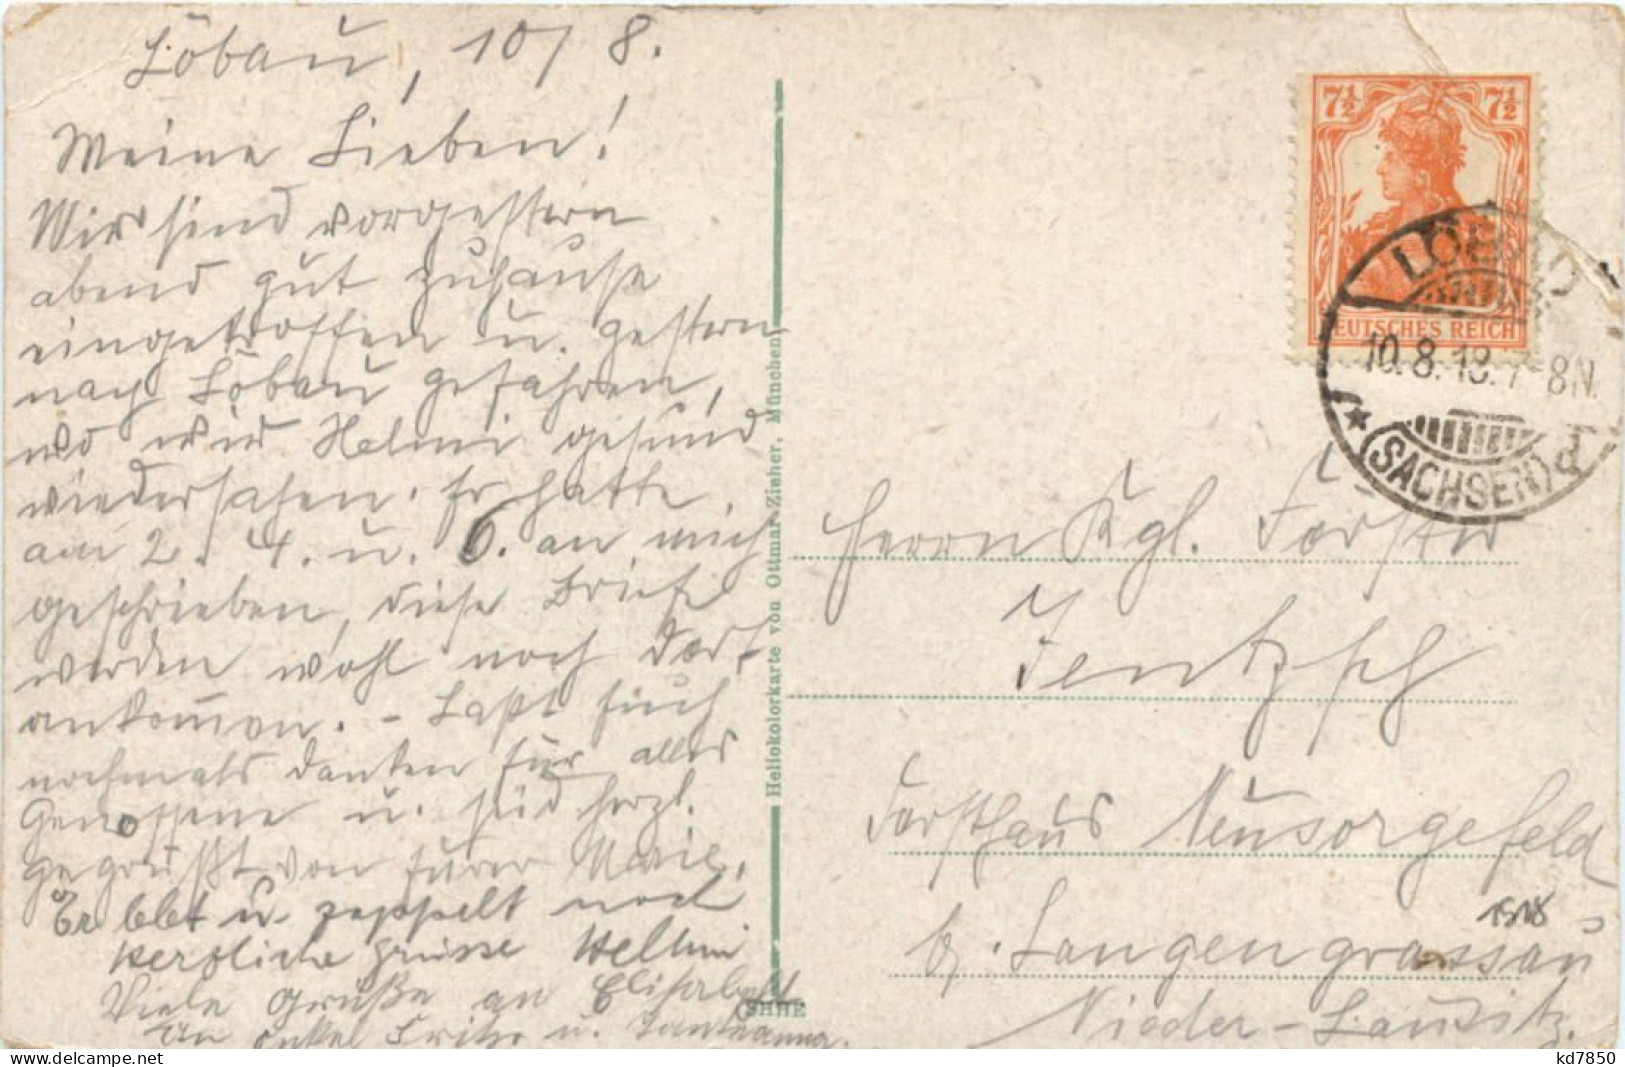 Löbau, 10/8.
Meine Lieben!
Wir sind vorgestern
abend gut zuhause
eingetroffen u. gestern
nach Löbau gefahren,
wo wir Helmi gesund
wiedersahen. Er hatte
am 2. 4. u. 6. an mich
geschrieben, diese Briefe
werden wohl noch dort
ankommen. - Laßt Euch
nochmals danken für alles
Genossene u. seid herzl.
gegrüßt von Eurer Marie.
Er lebt u. zappelt noch
herzliche Grüsse Hellmi
Viele Grüße an Elisabeth
An Onkel Fritz u. Tante Anna.
Heliokolorkarte von Ottmar Zieher, München
SHHE
7½ 7½
DEUTSCHES REICH
LÖBAU
10.8.18. 7-8N.
* (SACHSEN) d
Herrn Kgl. Förster
Jentzsch
Forsthaus Neusorgefeld
b. Langengrassau
Nieder-Lausitz.
1918
kd7850